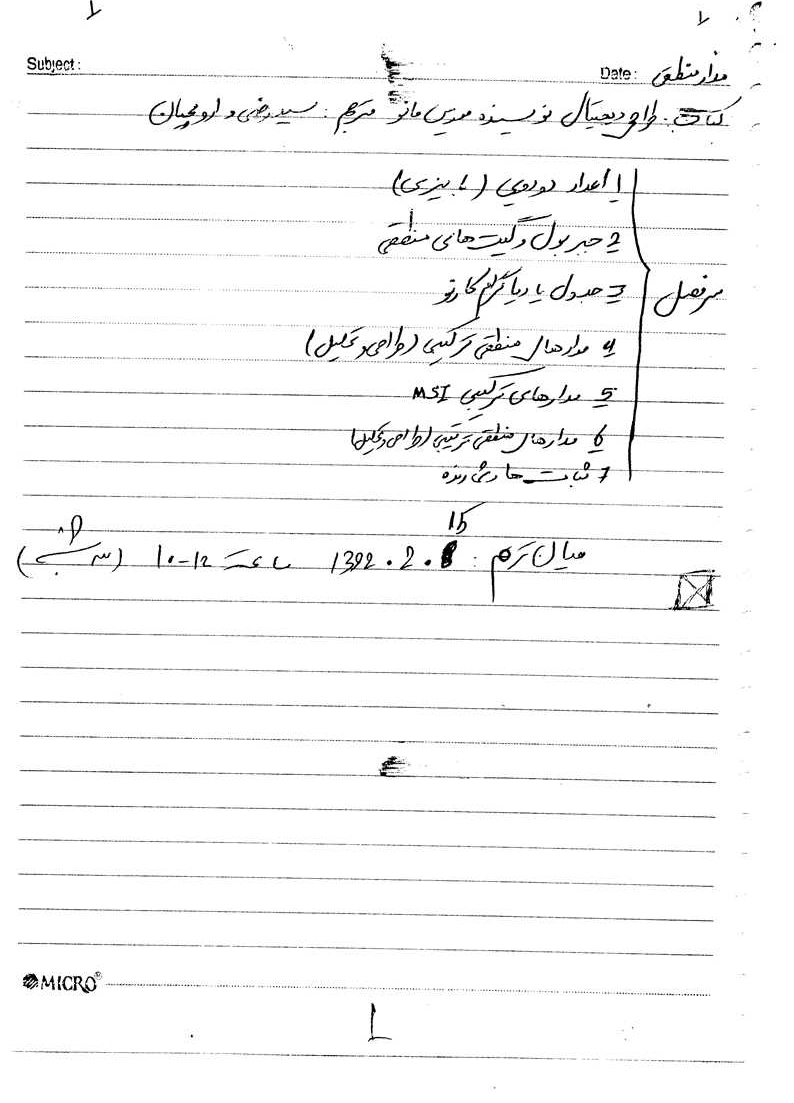 Subject :
Date : مدار منطقی
کتاب: طراحی دیجیتال نویسنده موریس مانو مترجم: سپیدنامی و
سرفصل
1 اعداد دودویی (باینری)
2 جبر بول و گیت های منطقی
3 جدول یا دیاگرام کارنو
4 مدارهای منطقی ترکیبی (طراحی و تحلیل)
5 مدارهای ترکیبی MSI
6 مدارهای منطقی ترتیبی (طراحی و تحلیل)
7 ثبات ها و شمارنده
میان ترم : 1392 . 2 . ساعت 10-12 (شنبه)
MICRO